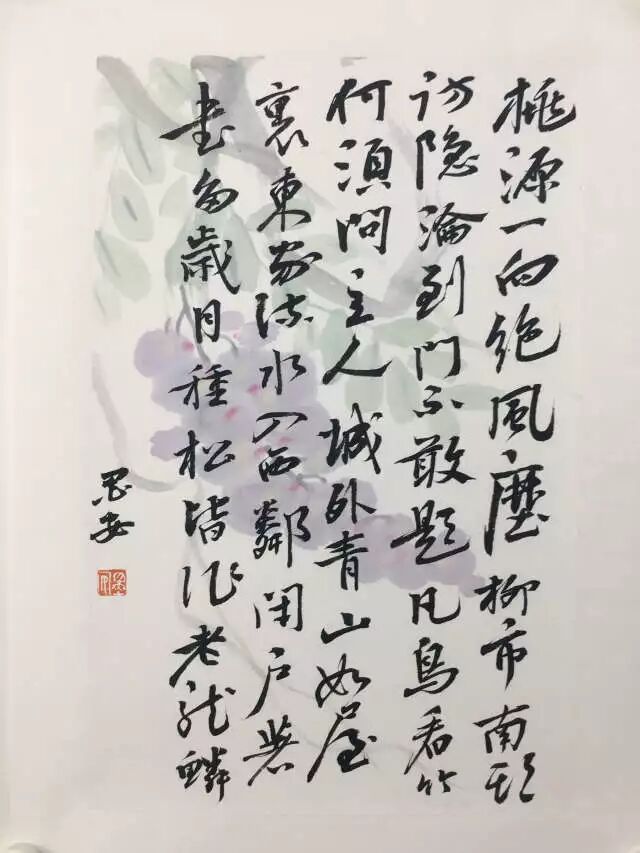 桃源一向絶風塵柳市南頭
訪隐淪到門不敢題凡鳥看竹
何須問主人城外青山如屋
裏東家流水入西鄰閉户著
書多歲月種松皆作老龍鱗
安